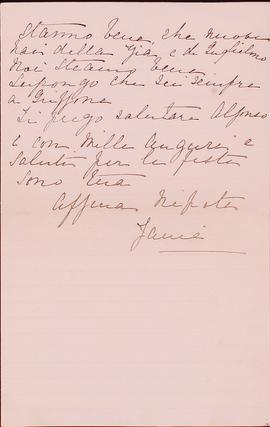 Stanno bene, che nuove
hai della Zia e di Guglielmo
Noi stiamo bene
Suppongo che sei sempre
a Griffona
Ti prego salutare Alfonso
e con mille auguri e
saluti per le feste
sono tua
Affma Nipote